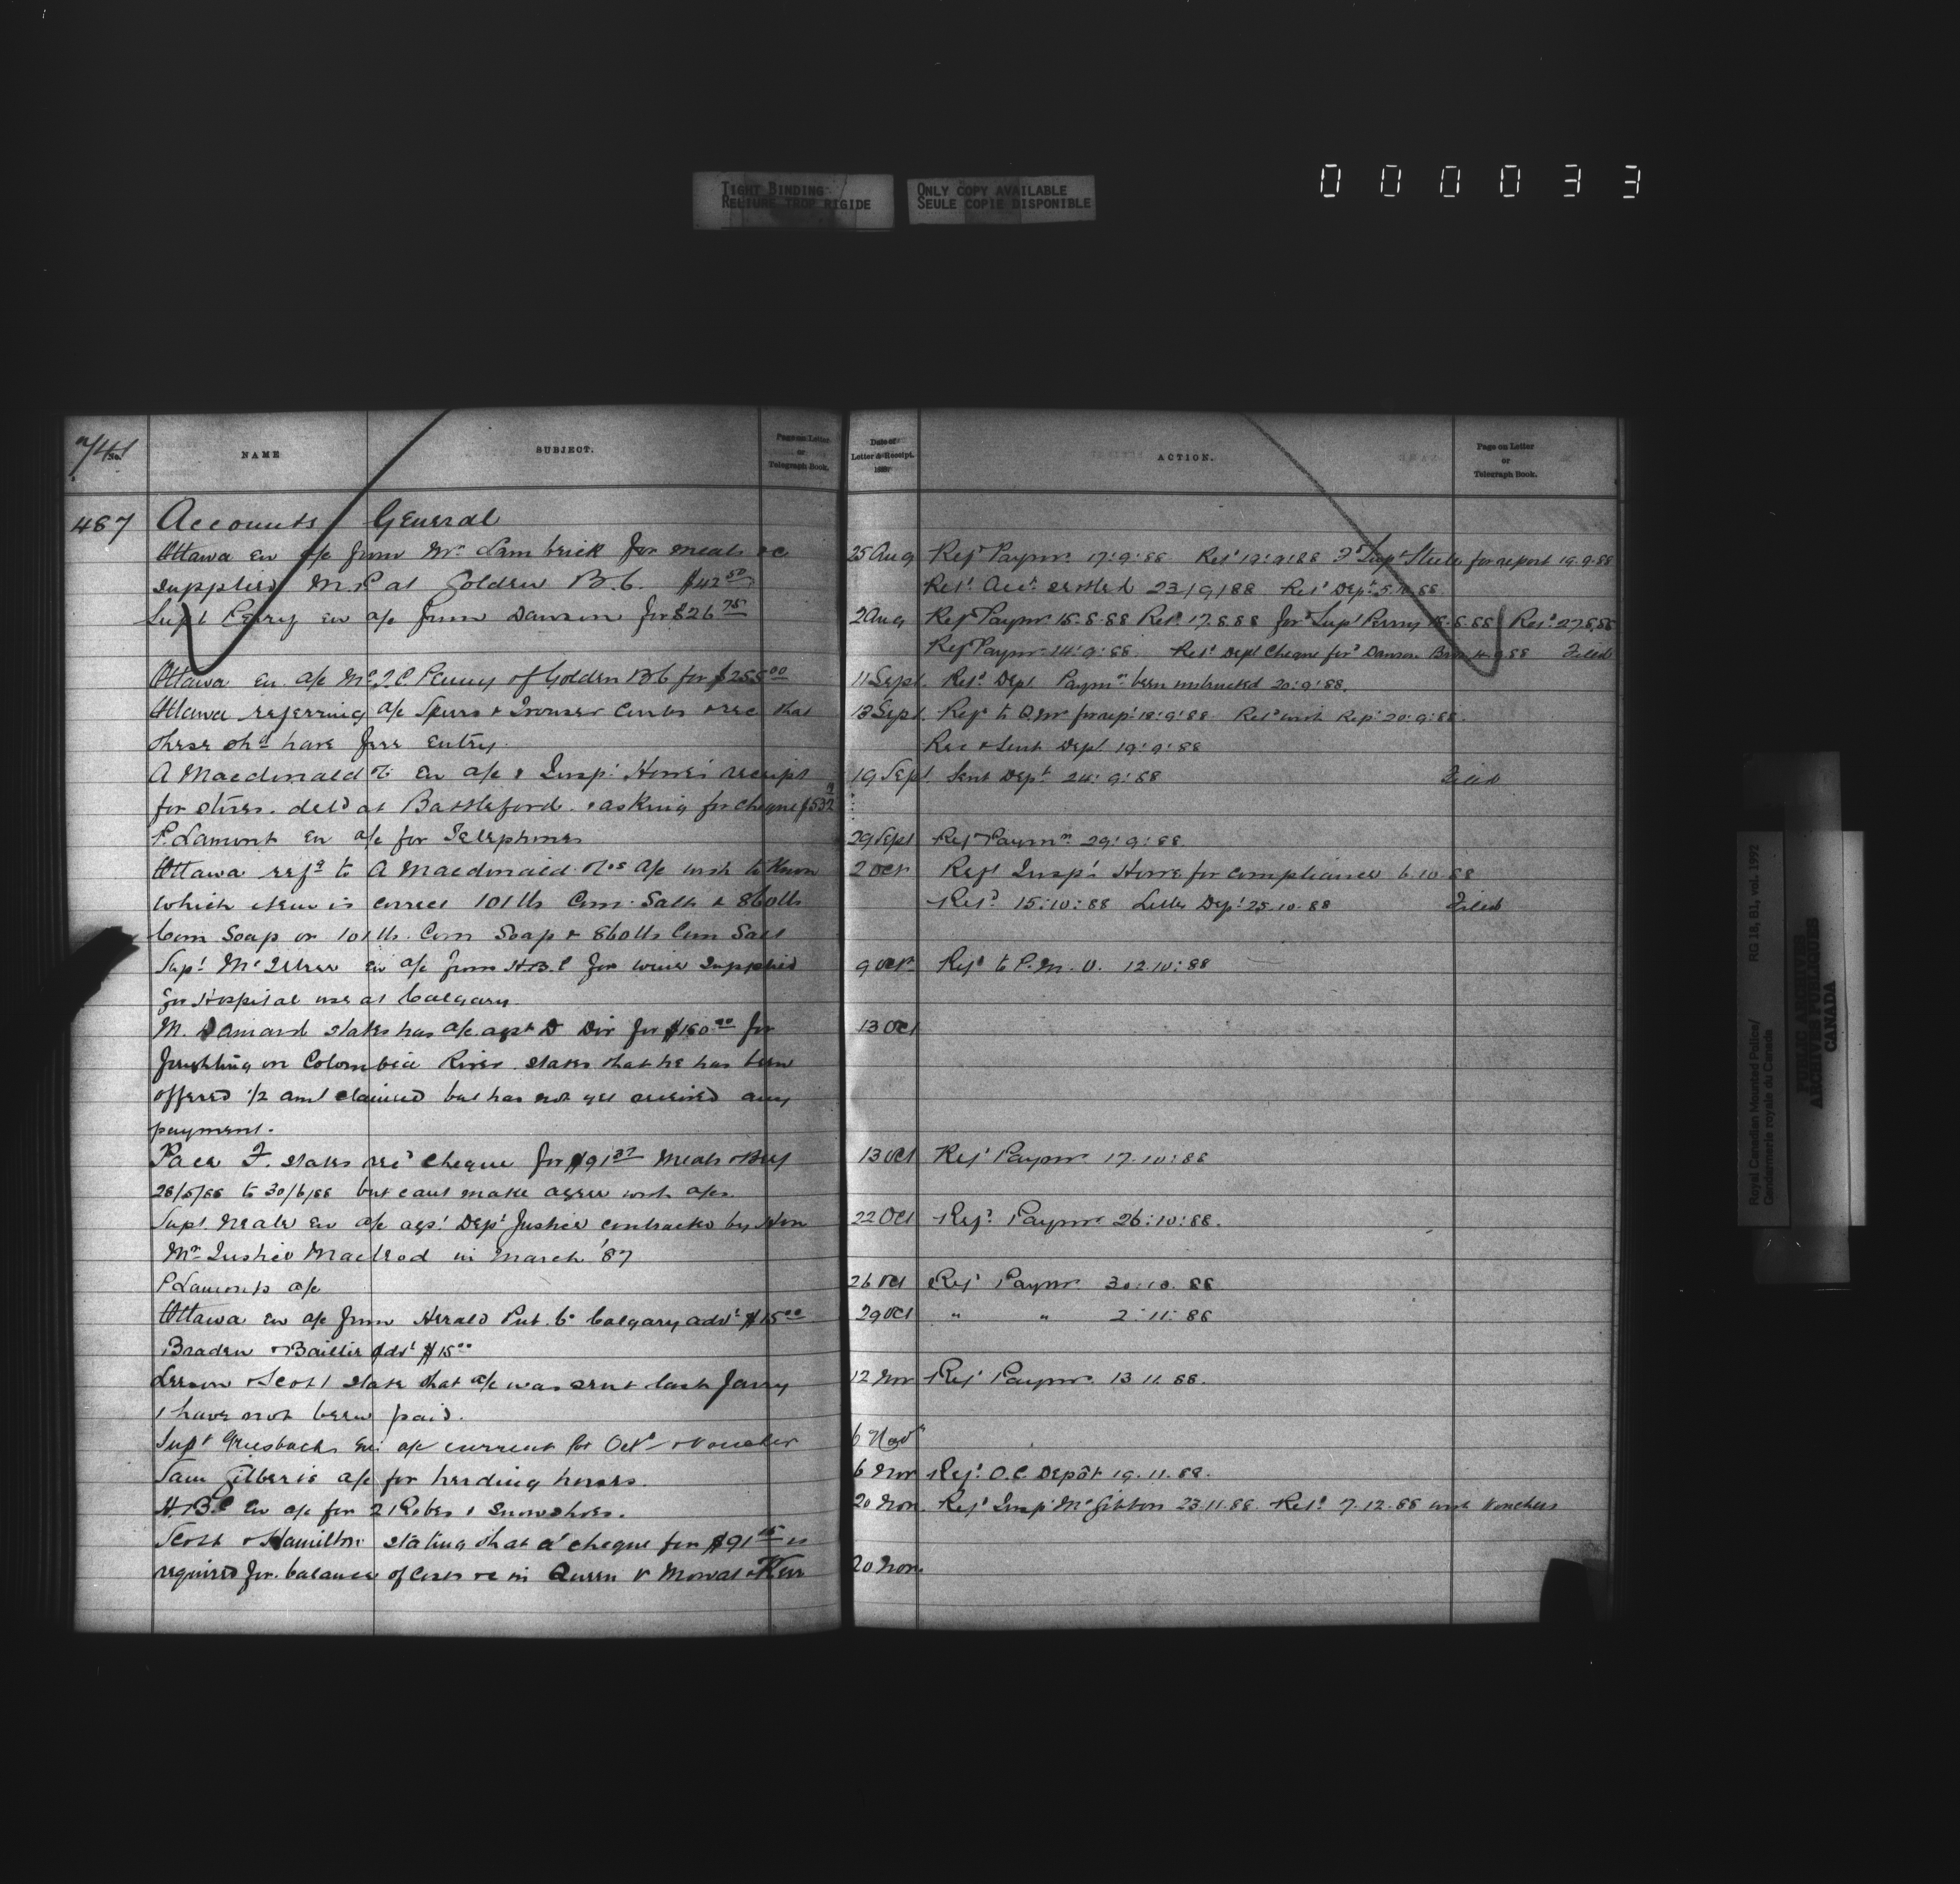 TIGHT BINDING
RELIURE TROP RIGIDE
ONLY COPY AVAILABLE
SEULE COPIE DISPONIBLE
0 0 0 0 3 3
No.
NAME
SUBJECT.
Page on Letter
or
Telegraph Book.
487 Accounts General
Ottawa En a/c from Mr. Lambrick for meals &c
supplied M.P. at Golden B.C. $42.50
Supt Perry En a/c from Dawson for $26.75
Ottawa En a/c of Golden B C for
Ottawa referring a/c Spurs & Trouser &c that
these shd have free Entry.
A Macdonald Co En a/c & Insp. receipt
for stores deld at Battleford & asking for cheque
P. Lamont En a/c for Telephones
Ottawa refg to A Macdonald Cos a/c wish to know
which item is correct 101 lbs Com. Salt & 860 lbs
Com Soap or 101 lbs. Com Soap & 860 lbs Com Salt
Supt En a/c from H.B.C for wine supplied
for Hospital use at Calgary.
M. states has a/c agst D Div for for
freighting on Colombia River. states that he has been
offered 1/2 amt claimed but has not yet received any
payment.
Pace F. states recd cheque for Meals & Beef
to 30/6/88 but cant make agree with a/cs
Supt. Neale En a/c agst Dept Justice contracted by Hon
Mr Justice Macleod in March '87
P Lamonts a/c
Ottawa En a/c from Herald Pub. Co Calgary advt $15.00
Braden & Baillie Advt $15.00
Leeson & Scott state that a/c was sent last Janry
& have not been paid.
Supt Griesbach En a/c current for Octr & voucher
Sam a/c for herding horses.
H.B.C En a/c for 2 Robes & Snowshoes.
Scott & Hamilton stating that a cheque for is
required for balance of Costs re in Queen v Mowat & Kerr
Date of
Letter & Receipt.
188
ACTION.
Page on Letter
or
Telegraph Book.
25 Aug Refd Paymr. 17:9:88 Retd 19:9:88 Fd Supt Steele for report 19.9.88
Retd Acct settled 23/9/88 Retd Dept
2 Aug Refd Paymr Retd 17.8.88 ford Supt Perry
Refd Paymr 14:9:88. Retd Dept Cheque ford Dawson Filed
11 Sept. Retd Dept Paymr been instructed 20:9:88.
13 Sept. Refd to Q Mr for rept 18:9:88 Retd with Rept 20:9:88.
Rec & Sent Dept 19:9:88
19 Sept. Sent Dept 24:9:88 Filed
29 Sept Refd Paymr 29:9:88.
2 Oct Refd Insp. for compliance 6.10.88
Retd 15:10:88 Letter Dept 25.10.88 Filed
9 Oct Refd to P.M.O. 12.10:88
13 Oct
13 Oct Refd Paymr 17.10:88
22 Oct Refd Paymr 26:10:88.
26 Oct Refd Paymr 30:10.88
29 Oct " " 2:11:88
12 Nov Refd Paymr. 13 11 88.
6 Nov
6 Nov Refd O.C. Depôt 19.11.88.
20 Nov. Refd Insp McGibbon 23.11.88. Retd 7.12.88 with vouchers
20 Nov.
Royal Canadian Mounted Police/ RG 18, B1, vol. 1992
Gendarmerie royale du Canada
PUBLIC ARCHIVES
ARCHIVES PUBLIQUES
CANADA